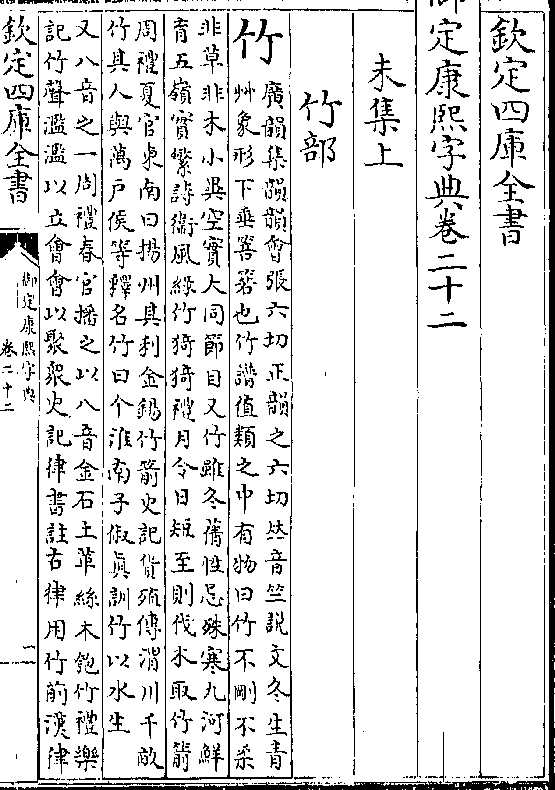 欽定四庫全書
御定康熙字典卷二十二
未集上
竹部
竹
廣韻集韻韻會張六切正韻之六切𠀤音竺說文冬生青
艸象形下垂箁箬也竹譜值類之中有物曰竹不剛不柔
非草非木小異空實大同節目又竹雖冬蒨性忌殊寒九河鮮
育五嶺實繁詩衛風綠竹猗猗禮月令日短至則伐木取竹箭
周禮夏官東南曰揚州其利金錫竹箭史記貨殖傳渭川千畝
竹其人與萬戶侯等釋名竹曰个淮南子俶真訓竹以水生
又八音之一周禮春官播之以八音金石土革絲木匏竹禮樂
記竹聲濫濫以立會會以聚衆史記律書註古律用竹前漢律
欽定四庫全書
御定康熙字典
卷二十二
一